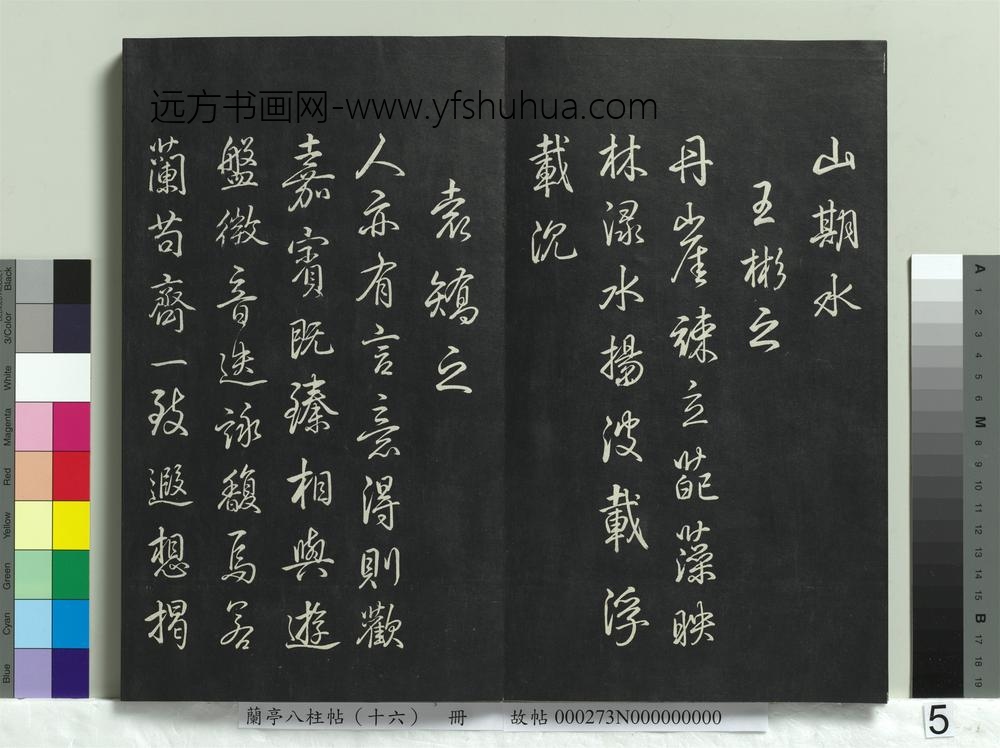 远方书画网-www.yfshuhua.com
山期水
王彬之
丹崖竦立葩藻映
林渌水揚波載浮
載沉
袁矯之
人亦有言意得則歡
嘉賓既臻相與遊
盤微音迭詠馥焉若
蘭苟齊一致遐想揭
蘭亭八柱帖（十六） 冊 故帖 000273N000000000
5
Black
3/Color
White
Magenta
Red
Yellow
Green
Cyan
Blue
A 1 2 3 4 5 6 M 8 9 10 11 12 13 14 15 B 17 18 19